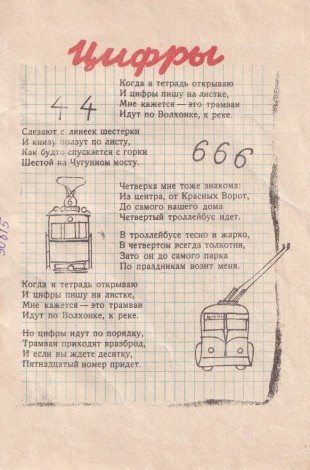 Цифры
Когда я тетрадь открываю
И цифры пишу на листке,
Мне кажется — это трамваи
Идут по Волхонке, к реке.
44
Слезают с линеек шестерки
И книзу ползут по листу,
Как будто спускается с горки
Шестой на Чугунном мосту.
666
Четверка мне тоже знакома:
Из центра, от Красных Ворот,
До самого нашего дома
Четвертый троллейбус идет.
В троллейбусе тесно и жарко,
В четвертом всегда толкотня,
Зато он до самого парка
По праздникам возит меня.
Когда я тетрадь открываю
И цифры пишу на листке,
Мне кажется — это трамваи
Идут по Волхонке, к реке.
Но цифры идут по порядку,
Трамваи приходят вразброд,
И если вы ждете десятку,
Пятнадцатый номер придет.